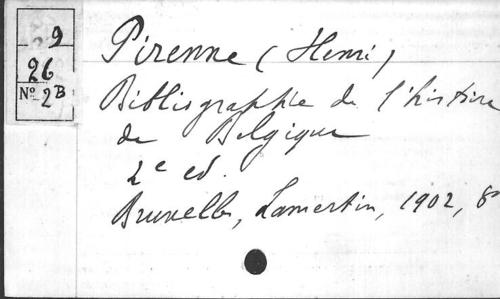 9
26
Nº 2B
Pirenne (Henri)
Bibliographie de l'histoire
de Belgique
2e ed.
Bruxelles, Lamertin, 1902, 8º